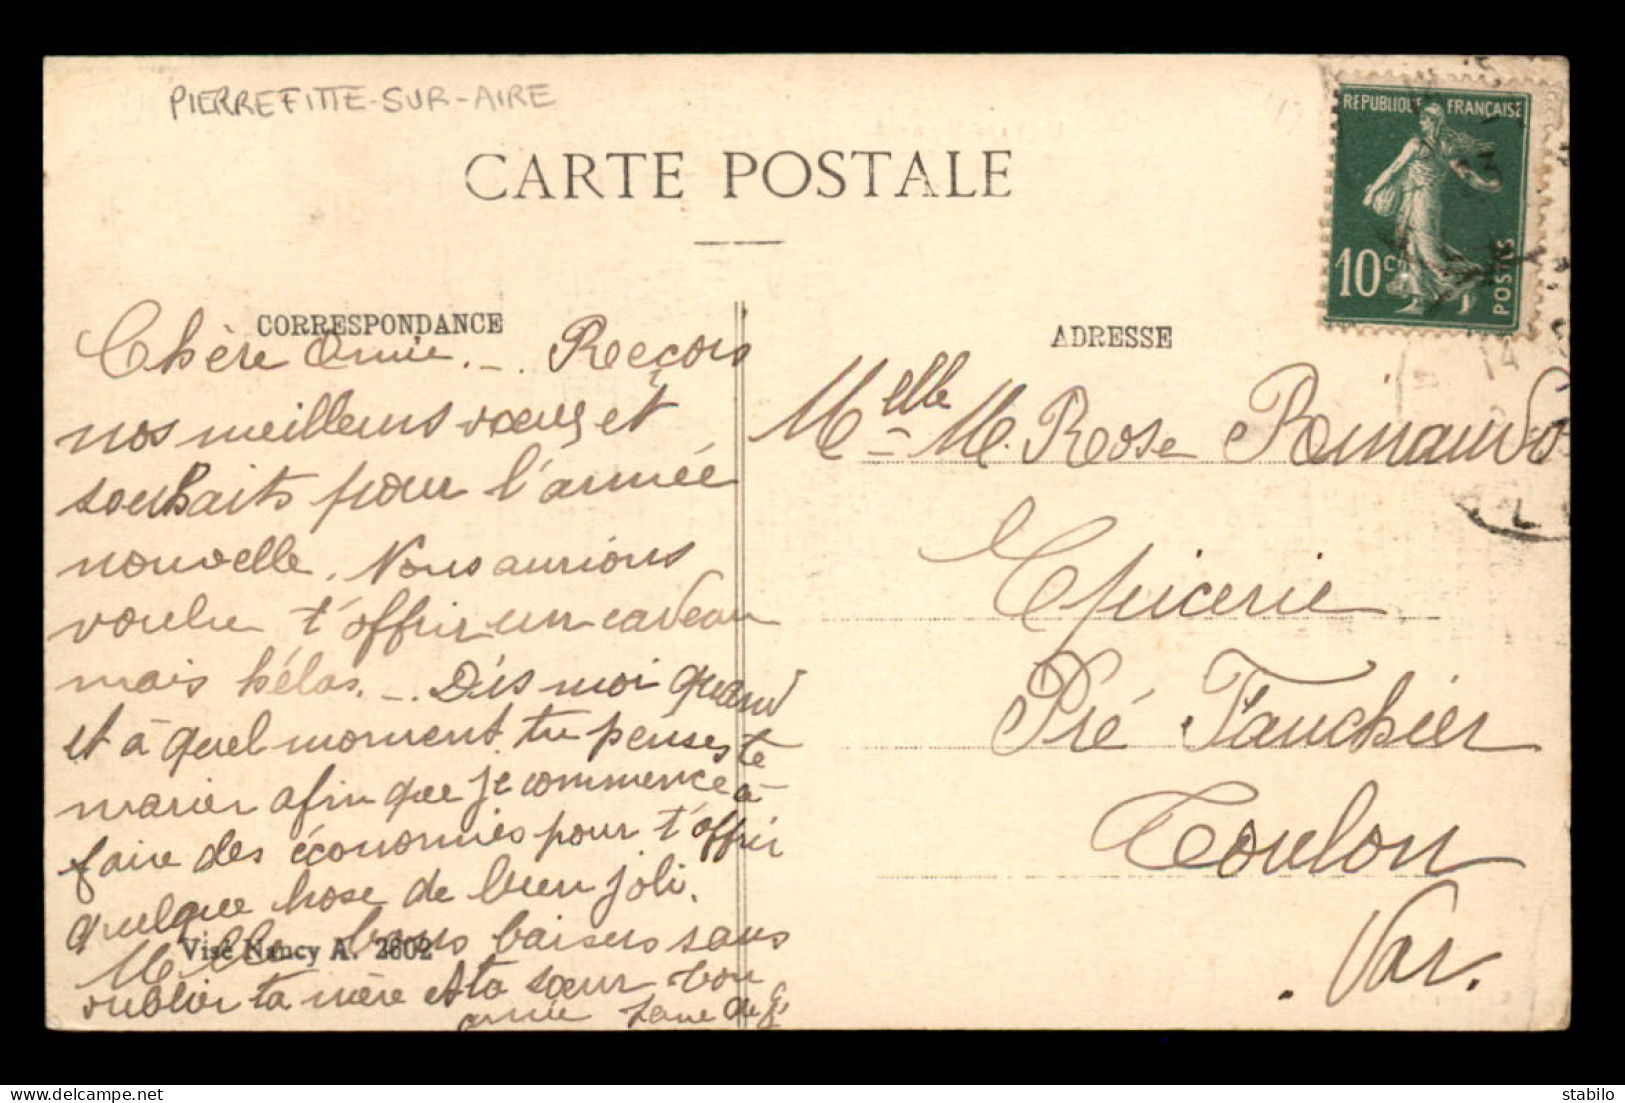 PIERREFITTE-SUR-AIRE
REPUBLIQUE FRANÇAISE
10 c
POSTES
CARTE POSTALE
CORRESPONDANCE
Chère Amie. _ . Reçois
nos meilleurs vœux et
souhaits pour l'année
nouvelle. Nous aurions
voulu t'offrir un cadeau
mais hélas. _ . Dis moi quand
et à quel moment tu penses te
marier afin que je commence à
faire des économies pour t'offrir
quelque hose de bien joli.
Mille bons baisers sans
oublier ta mère et ta sœur ton
amie
Visé Nancy A. 2602
ADRESSE
Melle M. Rose Reinaudo
Epicerie
Pré Fauchier
Toulon
. Var.
stabilo